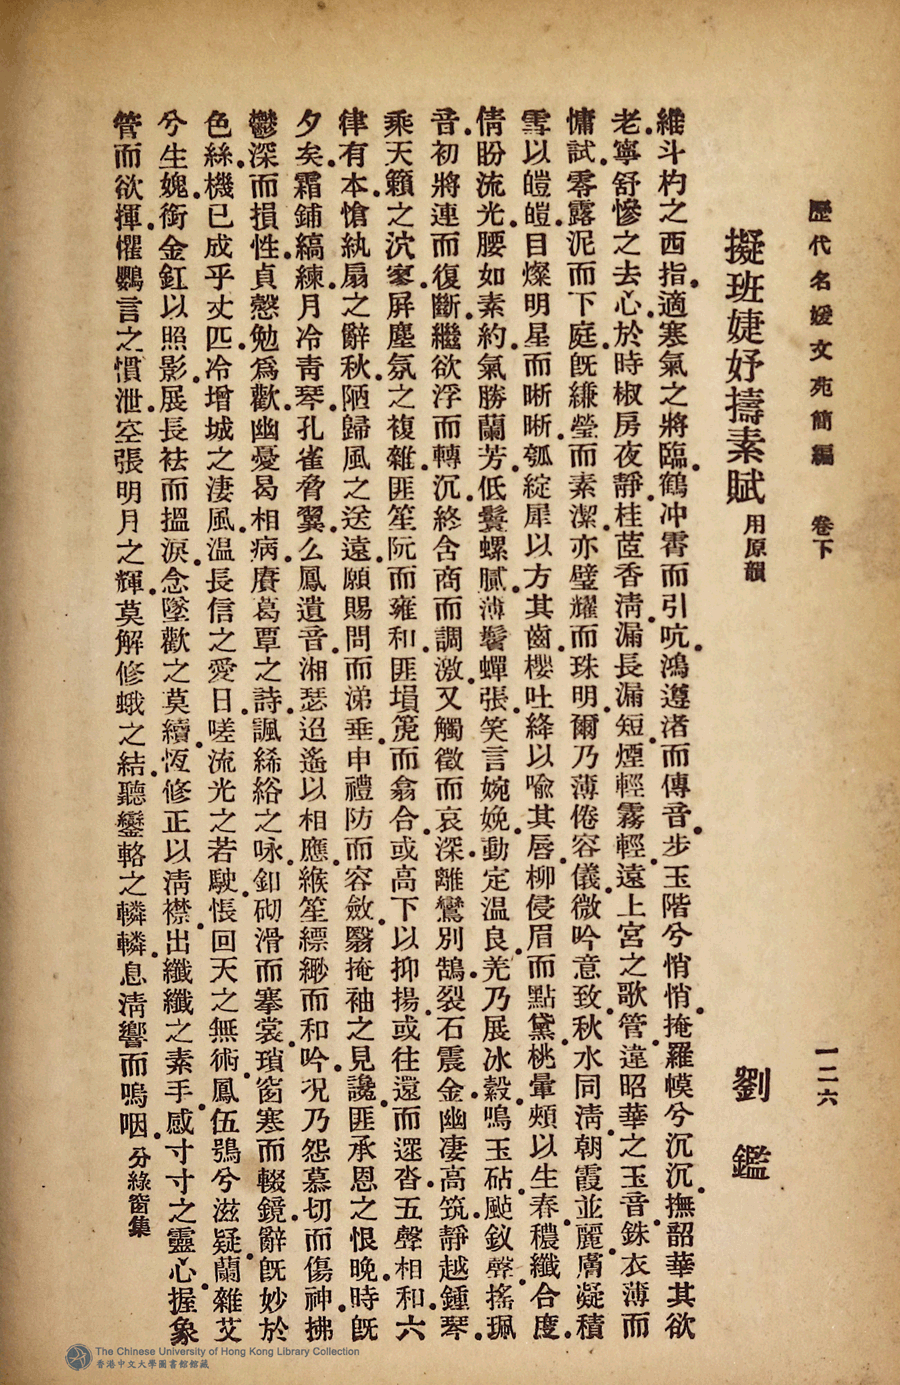 歷代名媛文苑簡編 卷下 一二六
擬班婕妤擣素賦 用原韻 劉鑑
維斗杓之西指。適寒氣之將臨。鶴冲霄而引吭。鴻遵渚而傳音。步玉階兮悄悄。掩羅幙兮沉沉。撫韶華其欲
老。寧舒慘之去心。於時椒房夜靜。桂茝香淸。漏長漏短。煙輕霧輕。遠上宮之歌管。違昭華之玉音。銖衣薄而
慵試。零露泥而下庭。旣縑瑩而素潔。亦璧耀而珠明。爾乃薄倦容儀。微吟意致。秋水同淸。朝霞並麗。膚凝積
雪以皚皚。目燦明星而晰晰。瓠綻犀以方其齒。櫻吐絳以喩其唇。柳侵眉而點黛。桃暈頰以生春。穠纖合度。
倩盼流光。腰如素約。氣勝蘭芳。低鬟螺膩。薄鬢蟬張。笑言婉娩。動定温良。羌乃展冰縠。鳴玉砧。颭釵聲。搖珮
音。初將連而復斷。繼欲浮而轉沉。終含商而調激。又觸徵而哀深。離鸞別鵠。裂石震金。幽凄高筑。靜越鍾琴。
乘天籟之泬寥。屛塵氛之複雜。匪笙阮而雍和。匪塤箎而翕合。或高下以抑揚。或往還而遝沓。五聲相和。六
律有本。愴紈扇之辭秋。陋歸風之送遠。願賜問而涕垂。申禮防而容斂。翳掩袖之見讒。匪承恩之恨晚。時旣
夕矣。霜鋪縞練。月冷靑琴。孔雀脅翼。么鳳遺音。湘瑟迢遙以相應。緱笙縹緲而和吟。况乃怨慕切而傷神。拂
鬱深而損性。貞愨勉爲歡。幽憂曷相病。賡葛覃之詩。諷絺綌之咏。釦砌滑而搴裳。瑣窗寒而輟鏡。辭旣妙於
色絲。機已成乎丈匹。冷增城之凄風。温長信之愛日。嗟流光之若駛。悵回天之無術。鳳伍鴞兮滋疑。蘭雜艾
兮生媿。銜金釭以照影。展長袪而搵淚。念墜歡之莫續。恆修正以淸襟。出纖纖之素手。感寸寸之靈心。握象
管而欲揮。懼鸚言之慣泄。空張明月之輝。莫解修蛾之結。聽鑾輅之轔轔。息淸響而嗚咽。 分綠窗集
The Chinese University of Hong Kong Library Collection
香港中文大學圖書館館藏